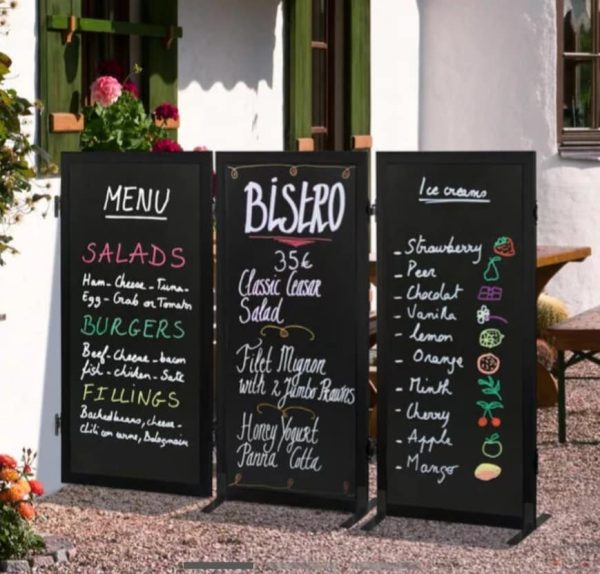 MENU
SALADS
Ham - Cheese - Tuna -
Egg - Crab or Tomato
BURGERS
Beef - Cheese - bacon
fish - chiken - Sate
FILLINGS
Backed beans, cheese -
Chili con carne, Bolognaise
BISTRO
35€
Classic Ceasar
Salad
Filet Mignon
with 2 Jumbo Prawns
Honey Yogurt
Panna Cotta
Ice creams
- Strawberry
- Pear
- Chocolat
- Vanilla
- lemon
- Orange
- Minth
- Cherry
- Apple
- Mango